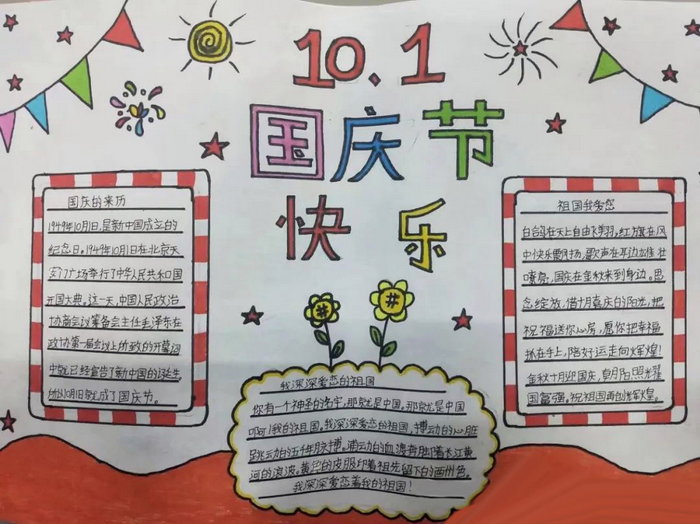 10.1
国庆节
快乐
国庆的来历
1949年10月1日,是新中国成立的
纪念日。1949年10月1日在北京天
安门广场举行了中华人民共和国
开国大典。这一天,中国人民政治
协商会议筹备会主任毛泽东在
政协第一届会议上所致的开幕词
中就已经宣告了新中国的诞生。
所以10月1日就成了国庆节。
祖国我爱您
白鸽在天上自由飞翔,红旗在风
中快乐飘扬,歌声在耳边雄壮
嘹亮,国庆在金秋来到身边。思
念绽放,借十月喜庆的阳光,把
祝福送你心房,愿你把幸福
抓在手上,陪好运走向辉煌!
金秋十月迎国庆,皇月阳照耀
国富强。祝祖国再创辉煌。
我深深爱恋的祖国
你有一个神圣的名字,那就是中国,那就是中国
啊!我的祖国。我深深爱恋的祖国,搏动的心脏
跳动的五千年脉搏。涌动的血液奔腾着长江黄
河的浪波。黄华的皮服印着祖先留下的西州色
我深深爱恋着我的祖国!